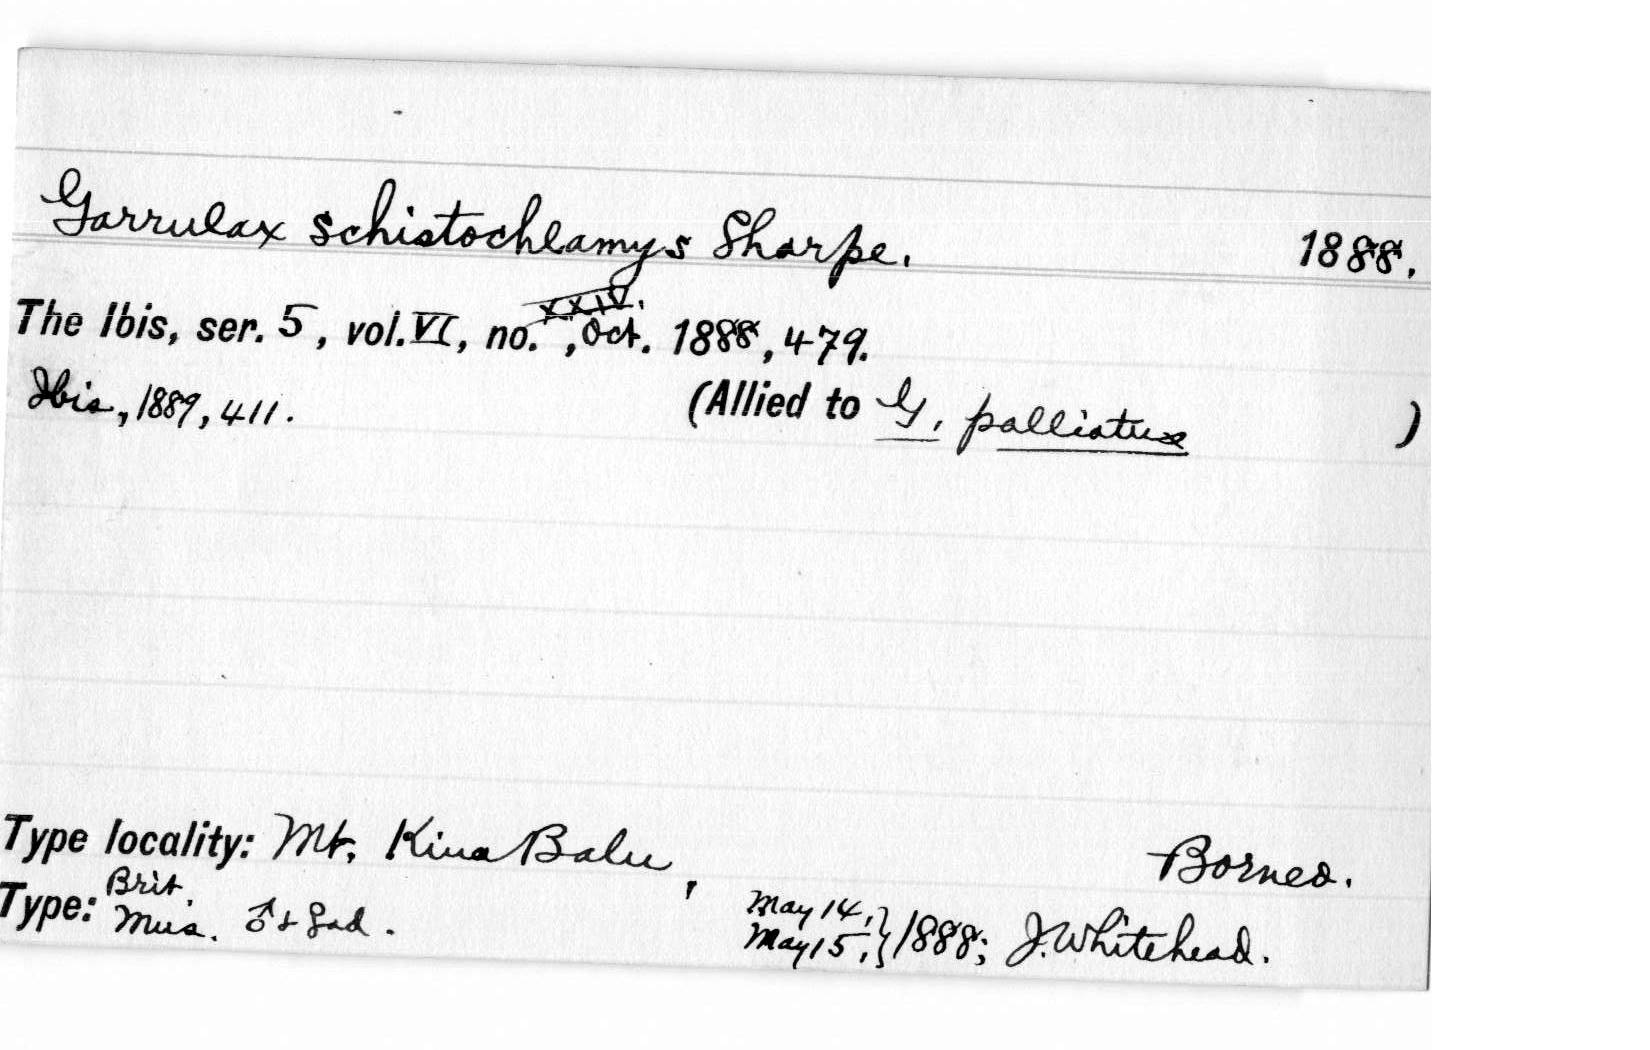 Garrulax schistochlamys Sharpe. 1888.
The Ibis, ser. 5, vol. VI, no. XXIV., Oct. 1888, 479.
Ibis, 1889, 411. (Allied to G. palliatus )
Type locality: Mt. Kina Balu, Borneo.
Type: Brit. Mus. ♂ + ♀ ad. May 14, May 15, } 1888; J. Whitehead.